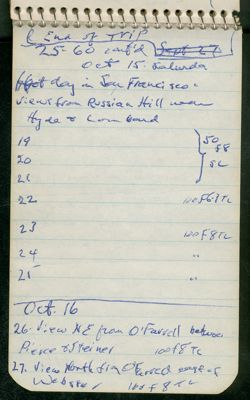 End of Trip
25-60 cont'd Sept 27
Oct 15. Saturday
day in San Francisco.
views from Russian Hill near
Hyde & Lombard
19 50
20 f8
21 SL
22 120 f6.3 TL
23 120 f 8 TL
24 "
25 "
Oct. 16
26. View NE from O'Farrell between
Pierce & Steiner 120 f 8 TL
27. View North from O'Farrell east of
Webster 120 f 8 TL